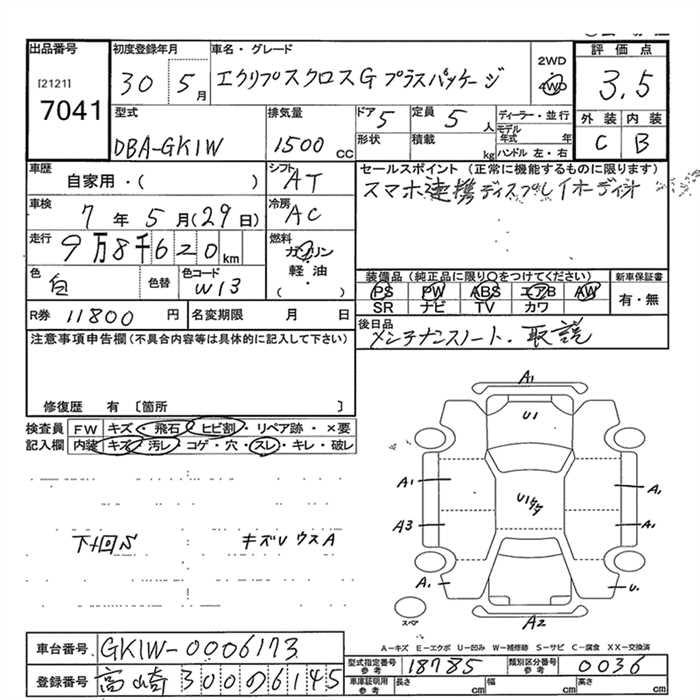 出品番号
[2121]
7041
初度登録年月
30 5月
車名・グレード
エクリプスクロスG プラスパッケージ
2WD
4WD
評価点
3.5
外装 内装
C B
型式
DBA-GK1W
排気量
1500 CC
ドア 5
定員 5 人
形状
積載 kg
ディーラー・並行
モデル年式 年
ハンドル 左・右
車歴
自家用・( )
シフト AT
車検
7年5月(29日)
冷房 AC
走行
9万8千620km
燃料
ガソリン
軽油
( )
色
白
色替
色コード
W13
R券 11800 円
名変期限 月 日
セールスポイント (正常に機能するものに限ります)
スマホ連携ディスプレイオーディオ
装備品 (純正品に限り○をつけてください)
PS PW ABS エアB AW
SR ナビ TV カワ
新車保証書
有・無
後日品
メンテナンスノート・取説
注意事項申告欄 (不具合内容等は具体的に記入して下さい)
修復歴 有 〔箇所 〕
検査員記入欄
FW キズ・飛石・ヒビ割・リペア跡・×要
内装 キズ・汚レ・コゲ・穴・スレ・キレ・破レ
キズU ウスA
A1
U1
A1
A3
A1
A1
A2
スペア
A-キズ E-エクボ U-凹み W-補修跡 S-サビ C-腐食 XX-交換済
車台番号
GK1W-0006173
登録番号
高崎 300 の 6145
型式指定番号 参考
18785
類別区分番号 参考
0036
車庫証明用 参考
長さ cm 幅 cm 高さ cm